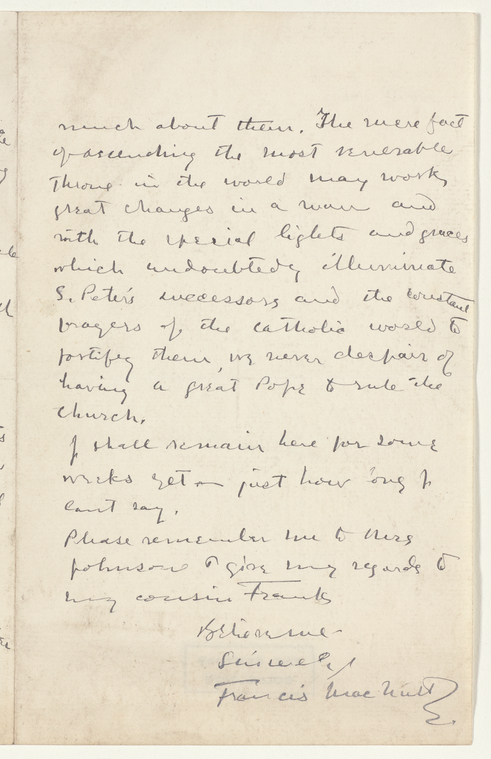 much about them. The mere fact
of ascending the most venerable
Throne in the world may work
great changes in a man and
with the special lights and graces
which undoubtedly illuminate
S. Peter's successors and the constant
prayers of the catholic world to
fortify them, we never despair of
having a great Pope to rule the
church.
I shall remain here for some
weeks yet — just how long I
can't say.
Please remember me to Mrs
Johnson & give my regards to
my cousin Frank
Believe me
Sincerely
Francis Mac Nutt